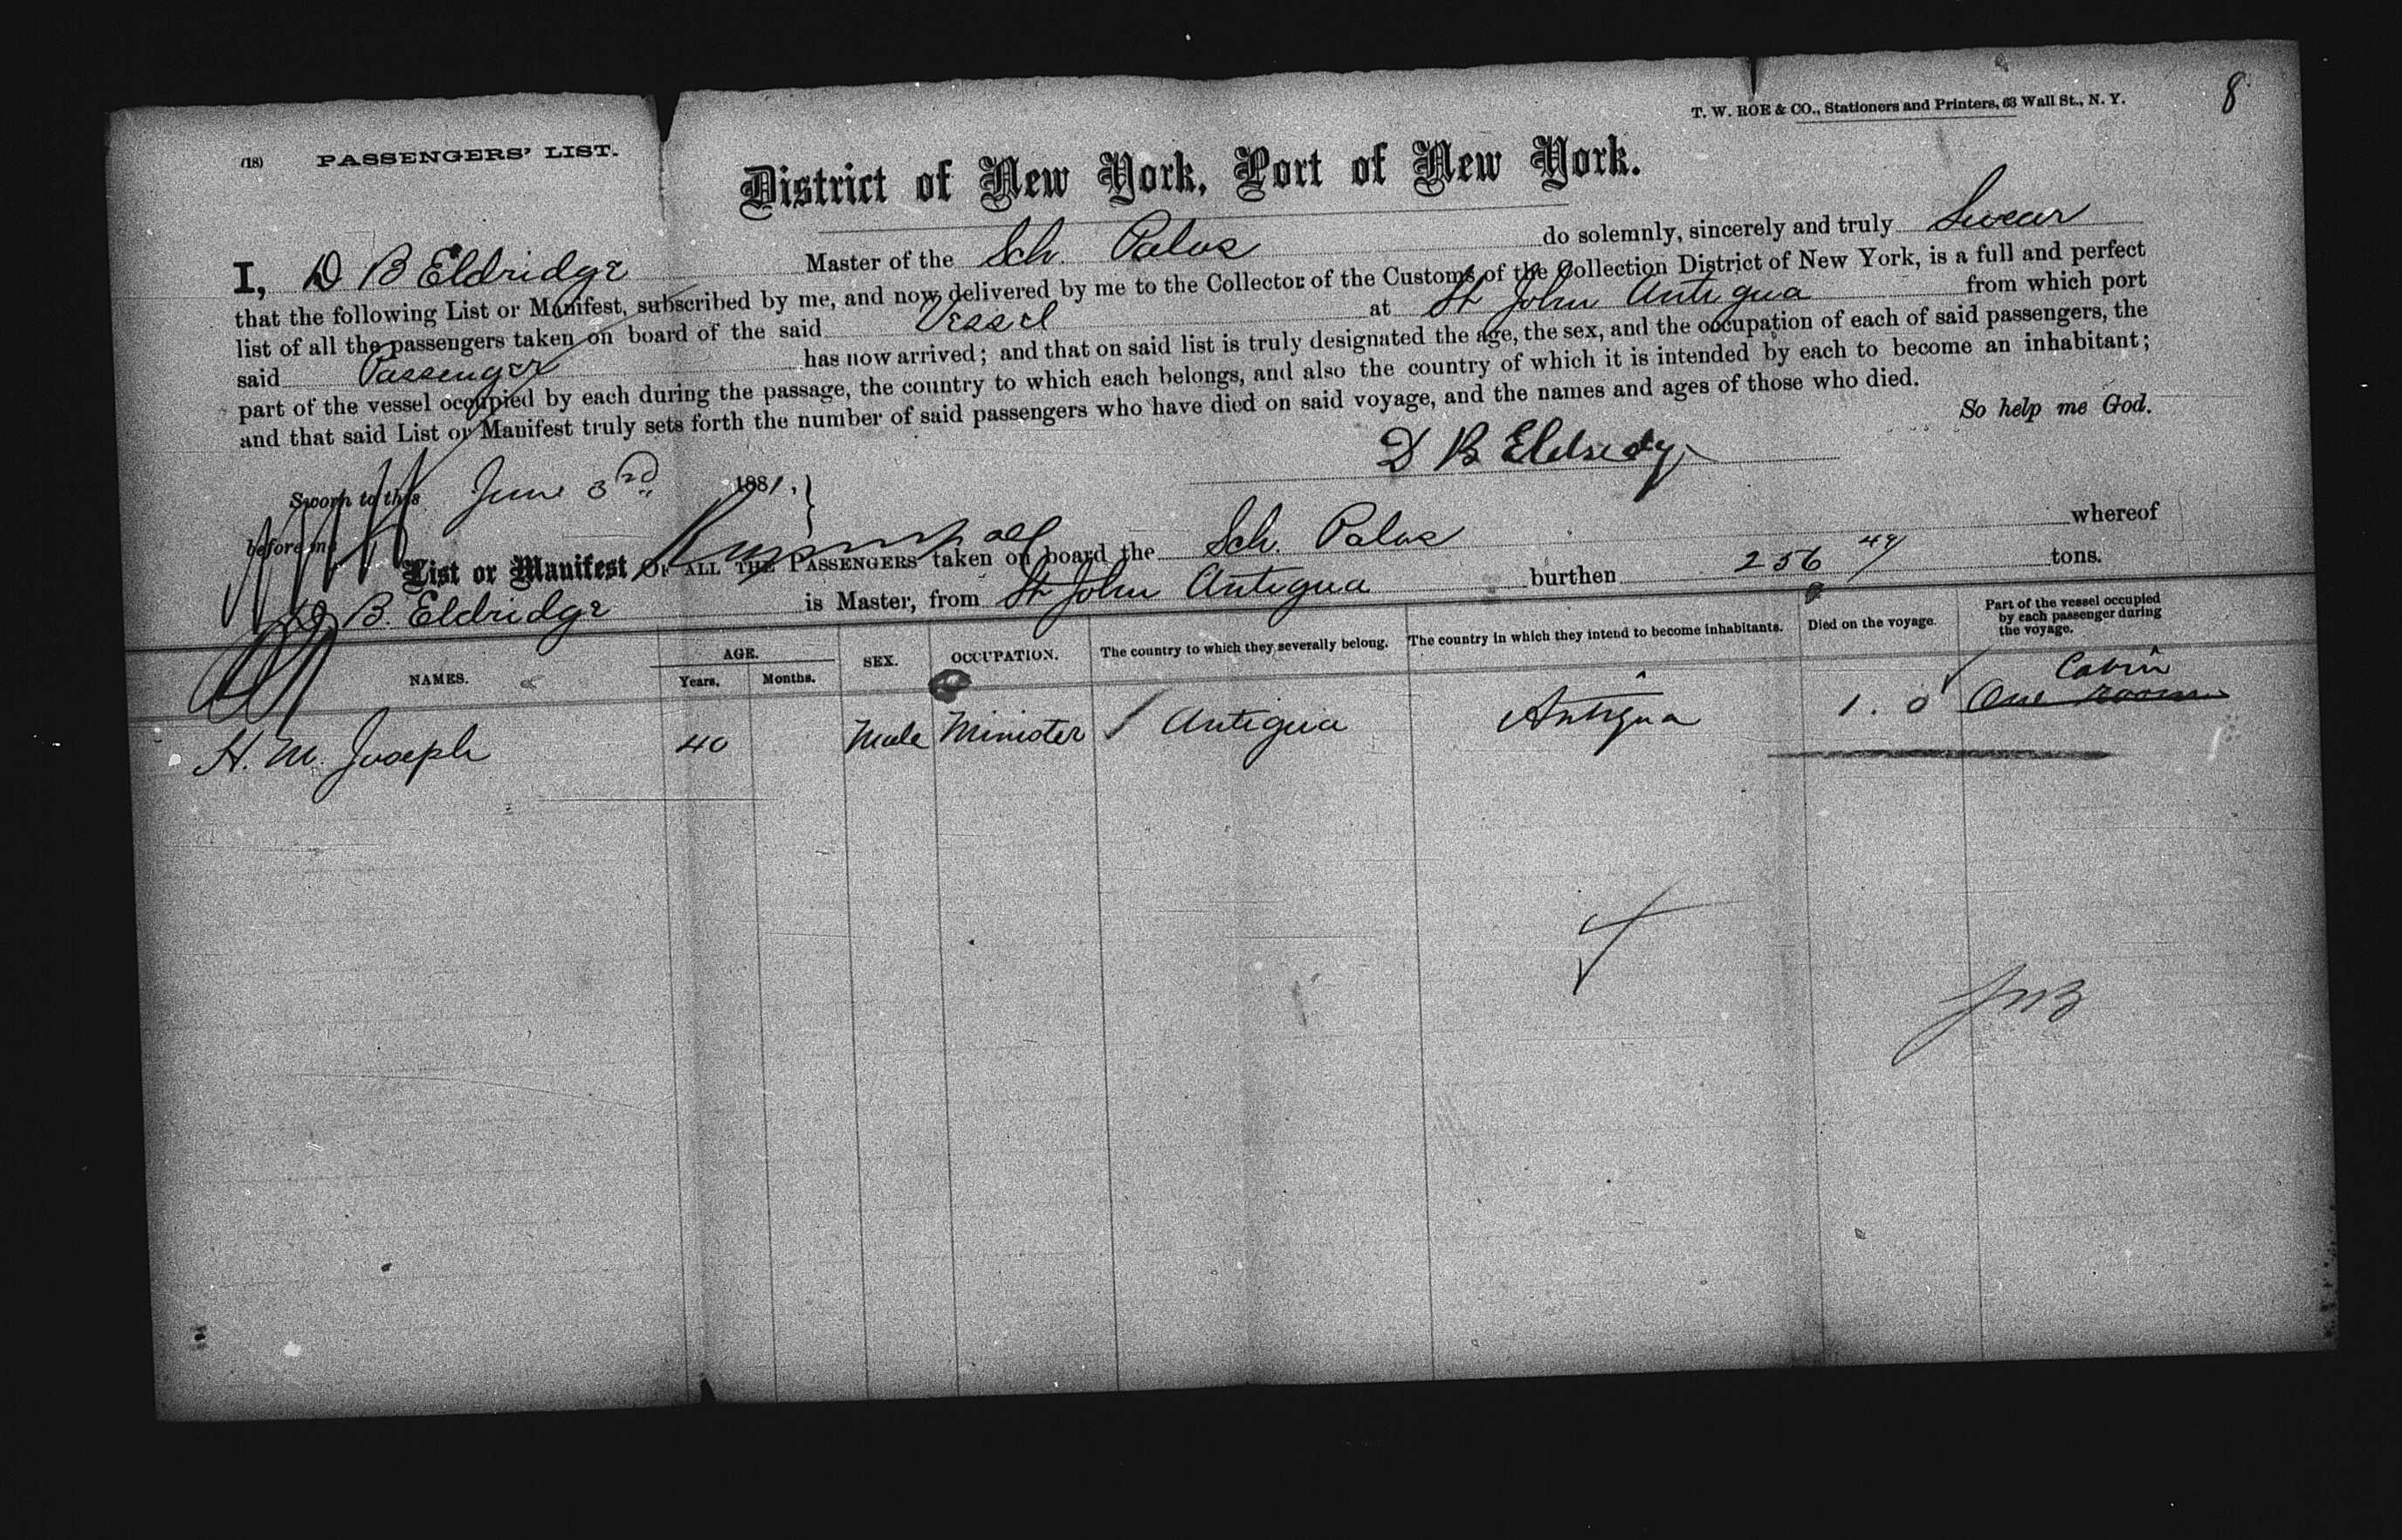 T. W. ROE & CO., Stationers and Printers, 63 Wall St., N. Y.
8
(18) PASSENGERS' LIST.
District of New York, Port of New York.
I, D B Eldridge Master of the Sch. Palos do solemnly, sincerely and truly Swear
that the following List or Manifest, subscribed by me, and now delivered by me to the Collector of the Customs of the Collection District of New York, is a full and perfect
list of all the passengers taken on board of the said Vessel at St John Antigua from which port
said Passenger has now arrived; and that on said list is truly designated the age, the sex, and the occupation of each of said passengers, the
part of the vessel occupied by each during the passage, the country to which each belongs, and also the country of which it is intended by each to become an inhabitant;
and that said List or Manifest truly sets forth the number of said passengers who have died on said voyage, and the names and ages of those who died.
So help me God.
D B Eldredge
Sworn to this June 3rd 1881,
before me
List or Manifest OF ALL THE PASSENGERS taken on board the Sch. Palos whereof
D. B. Eldridge is Master, from St John Antigua burthen 256 49 tons.
NAMES. AGE. Years. Months. SEX. OCCUPATION. The country to which they severally belong. The country in which they intend to become inhabitants. Died on the voyage. Part of the vessel occupied by each passenger during the voyage.
Cabin
H. M. Joseph 40 Male Minister Antigua Antigua 1. 0 One room